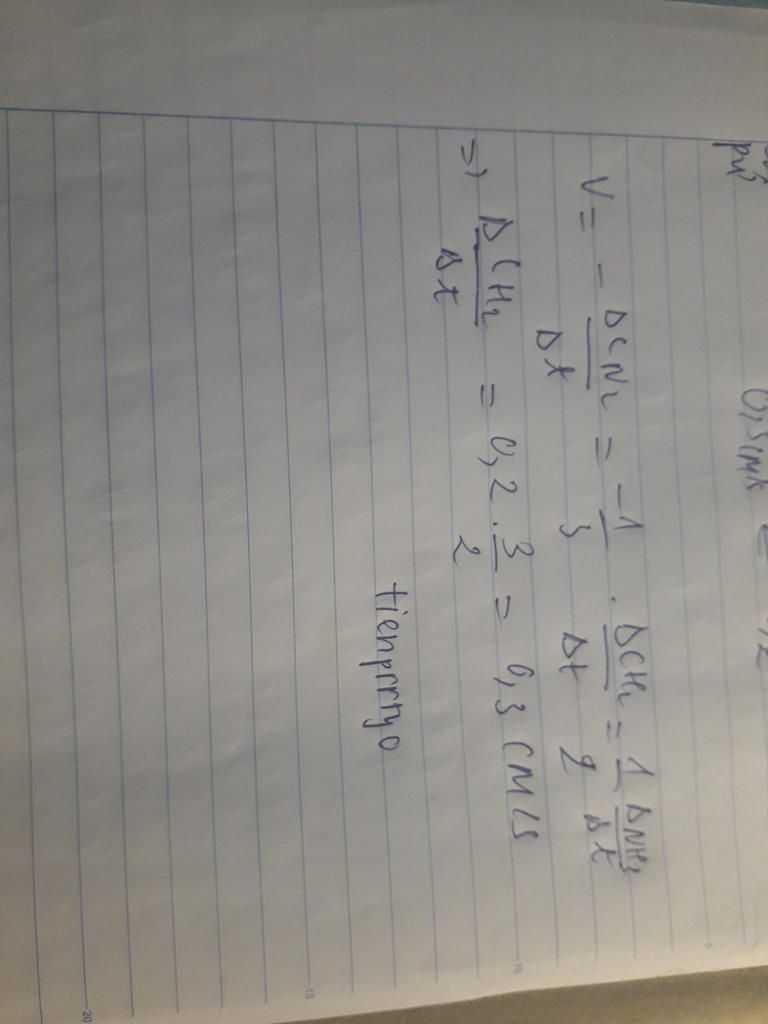 V = - ΔCN2/Δt = -1/3 . ΔCH2/Δt = 1/2 ΔNH3/Δt
=> ΔCH2/Δt = 0,2 . 3/2 = 0,3 (M/s
tienprrtyo
5
10
15
20